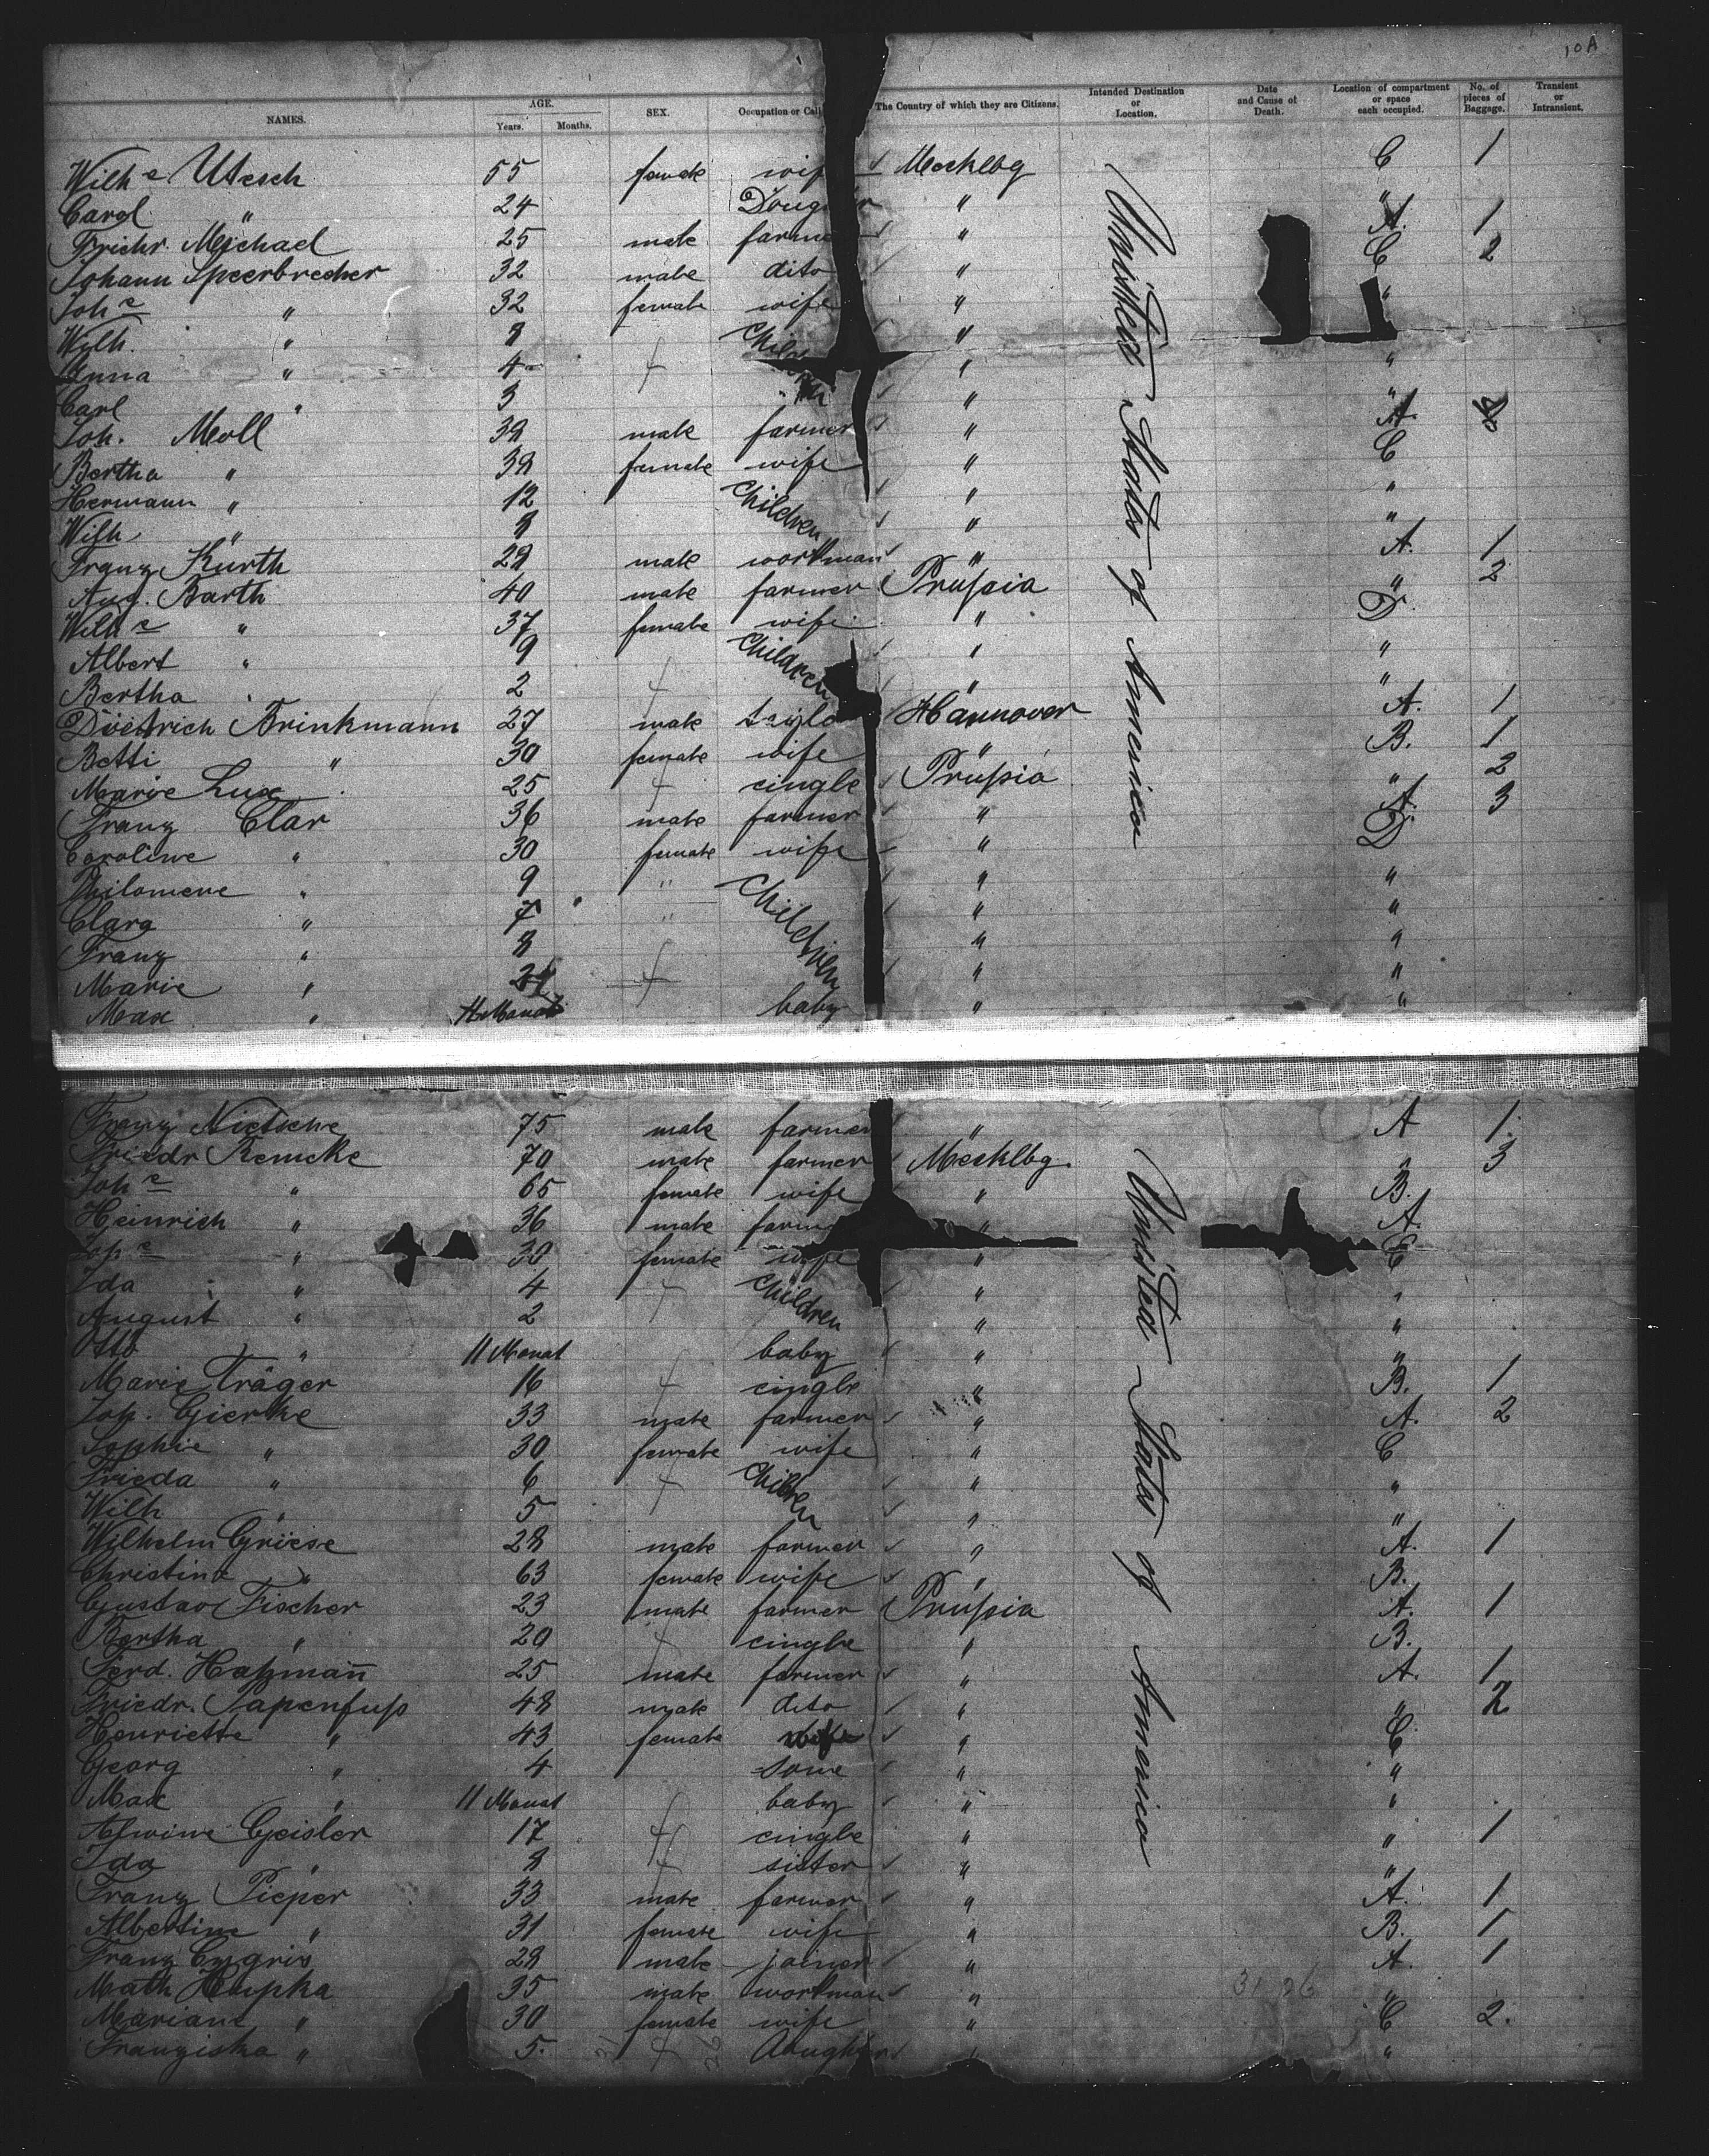 10A
NAMES. AGE. Years. Months. SEX. Occupation or Call The Country of which they are Citizens. Intended Destination or Location. Date and Cause of Death. Location of compartment or space each occupied. No. of pieces of Baggage. Transient or Intransient.
United States of America
Wilhe Utesch 55 female wif Mecklbg C 1
Carol " 24 Doug r " "
Friedr. Michael 25 male farme " A. 1
Johann Speerbrecher 32 male dito " C 2
Johe " 32 female wife " "
Wilh. " 8 Children "
Anna " 4 " "
Carl " 3 " "
Joh. Moll 38 male farmer " A.
Bertha " 38 female wife " C
Hermann " 12 Children " "
Wilh " 8 " "
Franz Kurth 28 male workman " A. 1
Aug. Barth 40 male farmer Prussia " 2
Wilhe " 37 female wife " D
Albert " 9 Children " "
Bertha " 2 " "
Diedrich Brinkmann 27 male taylo Hannover A. 1
Betti " 30 female wife " B. 1
Marie Lux 25 cingle Prussia " 2
Franz Clar 36 male farmer " A. 3
Caroline " 30 female wife " D
Philomene " 9 " Children " "
Clara " 7 " " "
Franz " 8 " "
Marie " " "
Max " 11 Monat baby " "
Franz Nietsche 75 male farmer " A 1.
Friedr Remcke 70 male farmer Mecklbg. " 3
Johe " 65 female wife " B.
Heinrich " 36 male farme " A.
Sophe " 30 female wife " C
Ida " 4 Children " "
August " 2 " "
Otto " 11 Monat baby " "
Marie Träger 16 cingle " B. 1
Joh. Gierke 33 male farmer " A. 2
Sophie " 30 female wife " C
Frieda " 6 Children " "
Wilh " 5 " "
Wilhelm Griese 28 male farmer " A. 1
Christine " 63 female wife " B.
Gustav Fischer 23 male farmer Prussia A. 1
Bertha " 20 cingle " B.
Ferd. Hassmann 25 male farmer " A. 1
Friedr. Papenfuss 48 male dito " " 2
Henriette " 43 female wife " C
Georg " 4 sone " "
Max " 11 Monat baby " "
Alwine Geisler 17 cingle " " 1
Ida " 8 sister " "
Franz Pieper 33 male farmer " A. 1
Albertine " 31 female wife " B. 1
Franz Cygris 28 male joiner " A. 1
Math Hupka 35 male workman " 31 26 "
Mariane " 30 female wife " C 2.
Franziska " 5. Daughter " "
United States of America